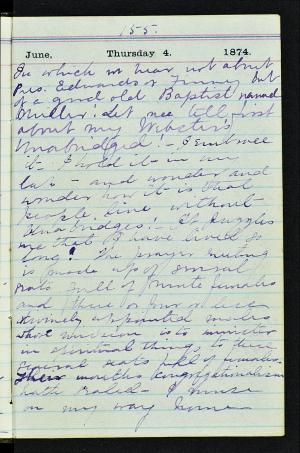 155.
June, Thursday 4. 1874.
In which we hear not about
Pres. Edwards or Finney, but
of a good old Baptist named
Miller! Let me tell first
about my Websters
Unabridged! I embrace
it - I hold it in my
lap - and wonder and
wonder how it is that
people live without
Unabridges! It puzzles
me that I have lived so
long! The prayer meeting
is made up of several
seats full of mute females
and three or four
males
whose mission is to minister
in spiritual things to these
several seats full of females.
months Congregationalism
hath
on my way home